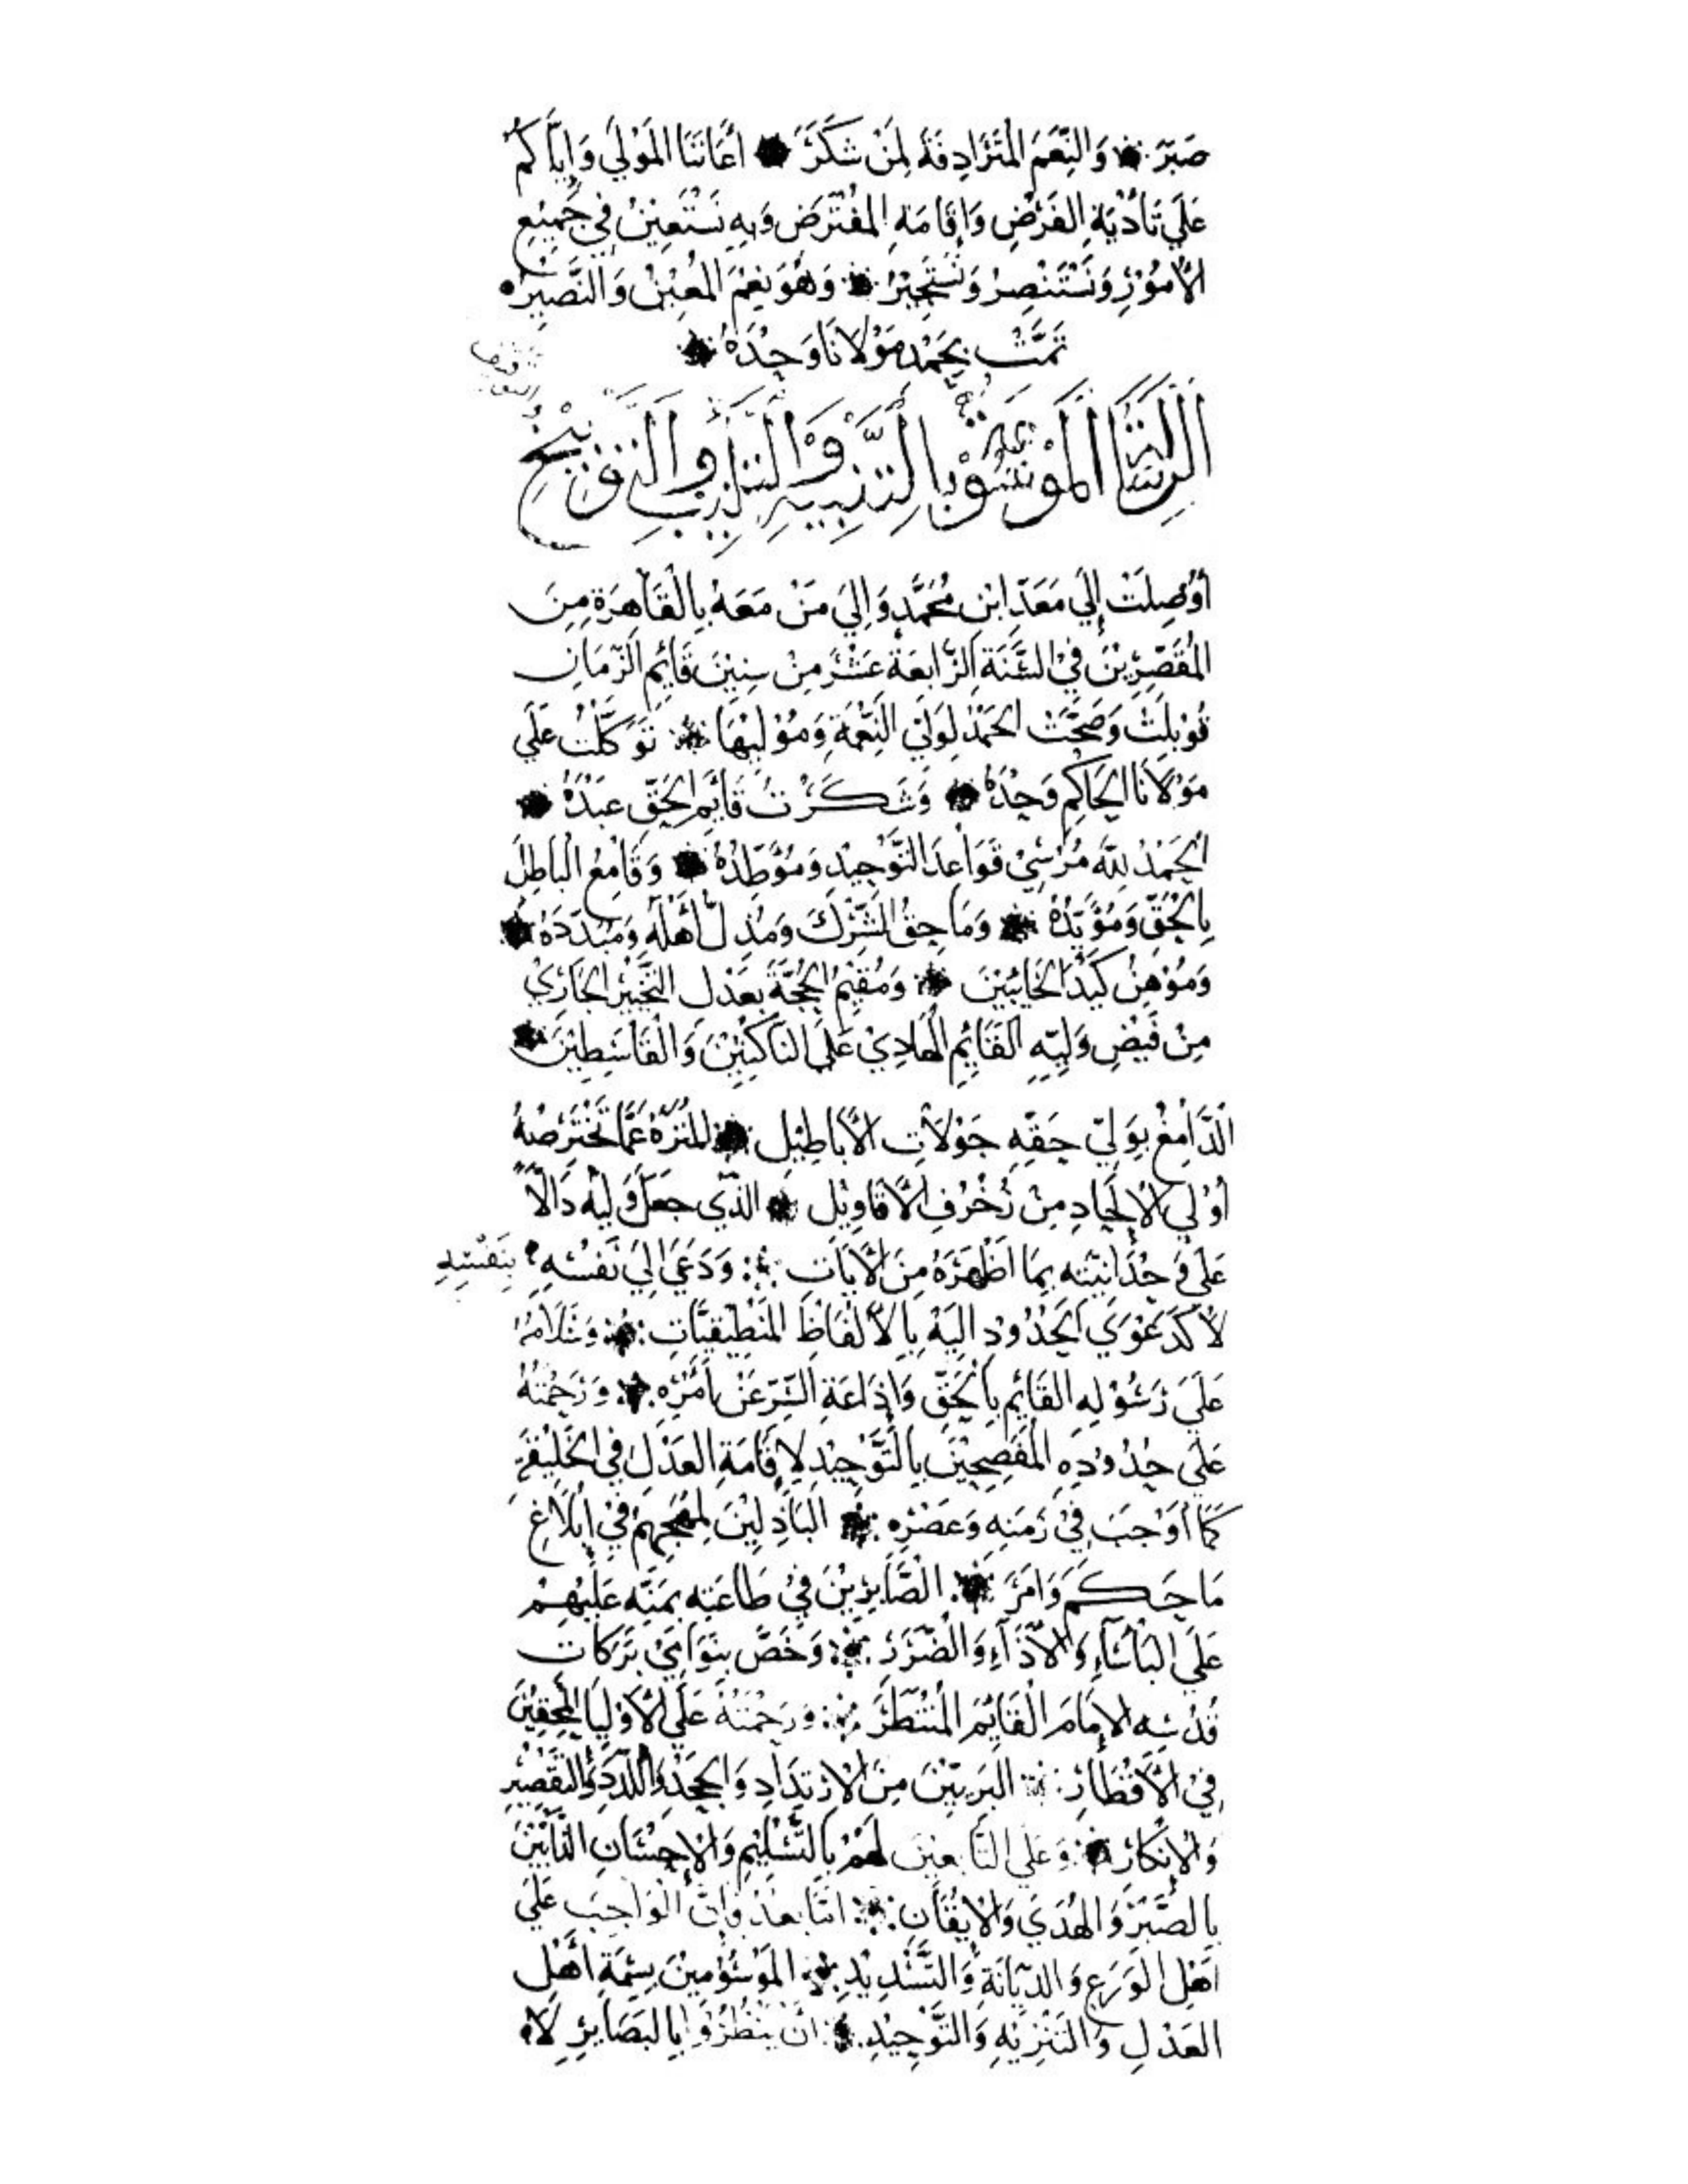 صَبَرَ ۞ وَالنِّعَمَ المُتَرَادِفَةَ لِمَنْ شَكَرَ ۞ أَعَانَنَا المَوْلَى وَإِيَّاكُمْ
عَلَى تَأْدِيَةِ الفَرْضِ وَإِقَامَةِ المُفْتَرَضِ وَبِهِ نَسْتَعِيْنُ فِي جَمِيْعِ
الأُمُوْرِ وَنَسْتَنْصِرُ وَنَسْتَجِيْرُ ۞ وَهُوَ نِعْمَ المُعِيْنُ وَالنَّصِيْرُ ۞
تَمَّتْ بِحَمْدِ مَوْلَانَا وَحْدَهُ ۞
الرِّسَالَةُ المَوْسُوْمَةُ بِالتَّنْبِيْهِ وَالتَّأْنِيْبِ وَالتَّوْبِيْخِ
أُوْصِلَتْ إِلَى مَعَدِّ ابْنِ مُحَمَّدٍ وَإِلَى مَنْ مَعَهُ بِالْقَاهِرَةِ مِنَ
المُقَصِّرِيْنَ فِيْ السَّنَةِ الرَّابِعَةَ عَشْرَ مِنْ سِنِيْنَ قَائِمِ الزَّمَانِ
قُوْبِلَتْ وَصَحَّتْ الحَمْدُ لِوَلِيِّ النِّعْمَةِ وَمُوْلِيْهَا ۞ تَوَكَّلْتُ عَلَى
مَوْلَانَا الحَاكِمِ وَحْدَهُ ۞ وَشَكَرْتُ قَائِمَ الحَقِّ عَبْدَهُ ۞
الحَمْدُ لِلَّهِ مُرْسِيْ قَوَاعِدَ التَّوْحِيْدِ وَمُؤَطِّدُهُ ۞ وَقَامِعُ البَاطِلَ
بِالحَقِّ وَمُؤَيِّدُهُ ۞ وَمَاحِقُ الشِّرْكَ وَمُذِلُّ أَهْلَهُ وَمُبَدِّدَهُ ۞
وَمُوْهِنُ كَيْدَ الخَائِنِيْنَ ۞ وَمُقِيْمُ الحُجَّةَ بِعَدْلِ التَّخْيِيْرِ الجَارِيْ
مِنْ فَيْضِ وَلِيِّهِ القَائِمِ الهَادِيْ عَلَى النَّاكِثِيْنَ وَالْقَاسِطِيْنَ ۞
الدَّامِغُ بِوَلِيِّ حَقِّهِ جَوْلَاتِ الأَبَاطِيْلِ ۞ المُنَزَّهُ عَمَّا تَخْتَرِصُهُ
أُوْلِي الإِلْحَادِ مِنْ زُخْرُفِ الأَقَاوِيْلِ ۞ الَّذِي جَعَلَ وَلِيَّهُ دَالًّا
عَلَى وَحْدَانِيَّتِهِ بِمَا أَظْهَرَهُ مِنَ الأَيَاتِ ۞ وَدَعَى إِلَى نَفْسِهِ بِنَفْسِهِ
لَا كَدَعْوَى الحُدُوْدِ إِلَيْهِ بِالأَلْفَاظِ المَنْطِيْقِيَّاتِ ۞ وَسَلَامُهُ
عَلَى رَسُوْلِهِ القَائِمِ بِالْحَقِّ وَإِذَاعَةِ السِّرِّ عَنْ أَمْرِهِ ۞ وَرَحْمَتُهُ
عَلَى حُدُوْدِهِ المُفْصِحِيْنَ بِالتَّوْحِيْدِ لِإِقَامَةِ العَدْلِ فِي الخَلِيْقَةِ
كَمَا أَوْجَبَ فِيْ زَمَنِهِ وَعَصْرِهِ ۞ البَاذِلِيْنَ لِمُهَجِهِمْ فِيْ إِبْلَاغِ
مَا حَكَمَ وَأَمَرَ ۞ الصَّابِرِيْنَ فِيْ طَاعَتِهِ بِمَنِّهِ عَلَيْهِمْ
عَلَى البَأْسَاءِ وَالأَذَاءِ وَالضَّرَرِ ۞ وَخَصَّ بِنَوَامِيْ بَرَكَاتِ
قُدْسِهِ الإِمَامَ القَائِمَ المُنْتَظَرَ ۞ وَرَحْمَتَهُ عَلَى الأَوْلِيَا المُحِقِّيْنَ
فِيْ الأَقْطَارِ ۞ البَرِيِّيْنَ مِنَ الإِرْتِدَادِ وَالجَحْدِ وَاللَّدَدِ وَالتَّقْصِيْرِ
وَالإِنْكَارِ ۞ وَعَلَى التَّابِعِيْنَ لَهُمْ بِالتَّسْلِيْمِ وَالإِحْسَانِ
بِالصَّبْرِ وَالهُدَى وَالإِيْقَانِ ۞ أَمَّا بَعْدُ فَإِنَّ الوَاجِبَ عَلَى
أَهْلِ الوَرَعِ وَالدِّيَانَةِ وَالتَّسْدِيْدِ ۞ المَوْسُوْمِيْنَ بِسِمَةِ أَهْلِ
العَدْلِ وَالتَّنْزِيْهِ وَالتَّوْحِيْدِ ۞ أَنْ يَنْظُرُوْا بِالبَصَائِرِ لَا